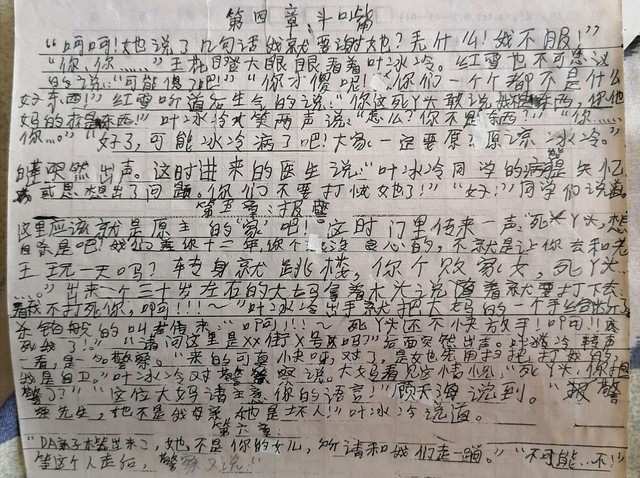 第四章:斗嘴篇
“呵呵!她说了几句话我就要谢她?凭什么!我不服!”
“你,你……”王花瞪大眼睛看着叶冰冷。红雪也不可思议
的说:“可能傻了吧”“你才傻呢!你们一个个都不是什么
好东西!”红雪听道后生气的说:“你这死丫头敢说我是东西,你他
妈的才是东西!”叶冰冷大笑两声说:“怎么?你不是东西?”“你……
你…。”“好了,可能冰冷病了吧!大家一定要原?原谅 冰冷。”
突然出声。这时进来的医生说:“叶冰冷同学的病是失忆
或思想出了问题。你们不要打扰她了!”“好!”同学们说道。
第五章:报警
这里应该就是原主的‘家’吧!这时门里传来一声:死丫头,想
自杀是吧!我们养你十二年,你个没良心的,不就是让你去和老
王玩一天吗?转身就跳楼,你个败家女,死丫头…
…。”出来一个三十岁左右的大妈拿着木头说随着就要打下去
看我不打死你,啊!!!~”叶冰冷出手就把大妈的一个手
杀猪般的叫着传来:“啊!!!~死丫头还不快放手!啊!!
死我了!”“请问这里是XX街X号
一看,是一名警察。“来的可真快呢,对了,是她先用打我的,
我是自卫。”叶冰冷对警察说。大妈看见这情况,“死丫头,你报
警了?”“这位大妈请注意你的语言!”顾天海说到。“报警
先生,她不是我母亲,她是坏人!”叶冰冷说道。
第六章:
出来了,她不是你的女儿,所请和我们走一趟。”“不可能…不!”
等这个人走后,警察又说:“